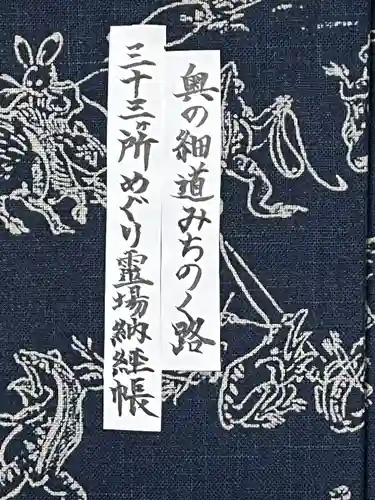 奥の細道みちのく路
三十三ヶ所めぐり霊場納経帳